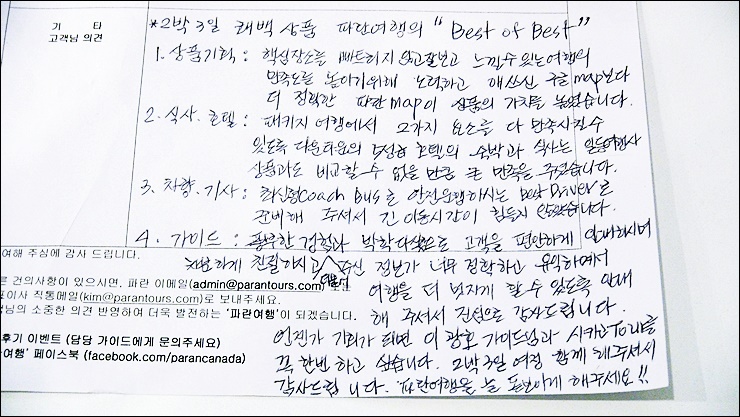 기 타
고객님 의견
*2박3일 퀘백 상품 파란여행의 "Best of Best"
1. 상품기획 : 핵심장소를 빠트리지 않고 잘보고 느낄수 있는 여행의
만족도를 높이기 위해 노력하고 애쓰신 구글map보다
더 정확한 파란map이 상품의 가치를 높였습니다.
2. 식사. 호텔 : 패키지 여행에서 2가지 요소를 다 만족시킬수
있도록 다운타운의 5성급 호텔의 숙박과 식사는 일등여행사
상품과도 비교할 수 없을 만큼 큰 만족을 주었습니다.
3. 차량. 기사 : 최신형 Coach Bus로 안전운행하시는 Best Driver로
준비해 주셔서 긴 이동시간이 힘들지 않았습니다.
4. 가이드 : 풍부한 경험과 박학다식으로 고객을 편안하게 안내하시며
여해 주심에 감사 드립니다.
차분하게 친절하시고 여행지 정보가 너무 정확하고 유익하여서
른 건의사항이 있으시면. 파란 이메일(admin@parantours.com)
여행을 더 멋지게 할 수 있도록 안내
표이사 직통메일(kim@parantours.com)로 보내주세요.
해 주셔서 진심으로 감사드립니다.
객님의 소중한 의견 반영하여 더욱 발전하는 '파란여행'이 되겠습니다.
언젠가 기회가 되면 이 광호 가이드님과 시카고 Tour를
후기 이벤트 (담당 가이드에게 문의주세요)
꼭 한번 하고 싶습니다. 2박3일 여정 함께 해주셔서
여행' 페이스북 (facebook.com/parancanada)
감사드립니다. 파란여행을 늘 도전하게 해주세요!!